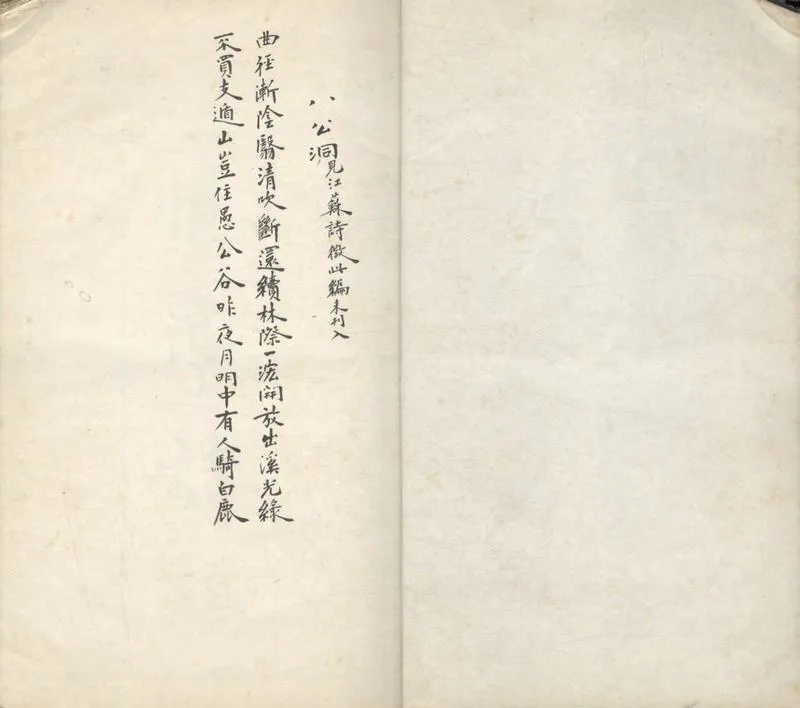 八公洞見江蘇詩徵此編未刊入
曲徑漸陰翳清吹斷還續林際一泓開放出溪光綠
不買支遁山豈住愚公谷昨夜月明中有人騎白鹿